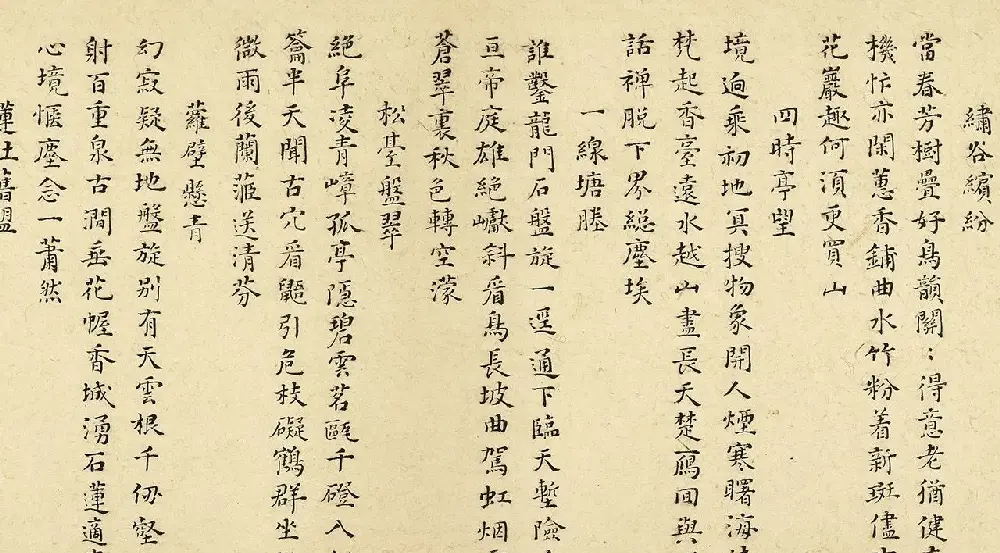 繡谷繽紛
當春芳樹疊好鳥韻關〻得意老猶健
機忙亦閑蕙香鋪曲水竹粉着新斑儘
花巖趣何須更買山
四時亭望
境迥乘初地冥搜物象開人煙寒曙海
梵起香臺遠水越山盡長天楚鴈回與
話禪脫下界總塵埃
一線塘勝
誰鑿龍門石盤旋一逕通下臨天塹險
亘帝庭雄絕巘斜看鳥長坡曲駕虹烟
蒼翠裏秋色轉空濛
松臺盤翠
絕阜凌青嶂孤亭隱碧雲茗甌千磴入
籥半天聞古穴看鼯引危枝礙鶴群坐
微雨後蘭茝送清芬
蘿壁懸青
幻寂疑無地盤旋別有天雲根千仞壑
射百重泉古澗垂花幄香城湧石蓮適
心境愜塵念一蕭然
蓮社舊盟